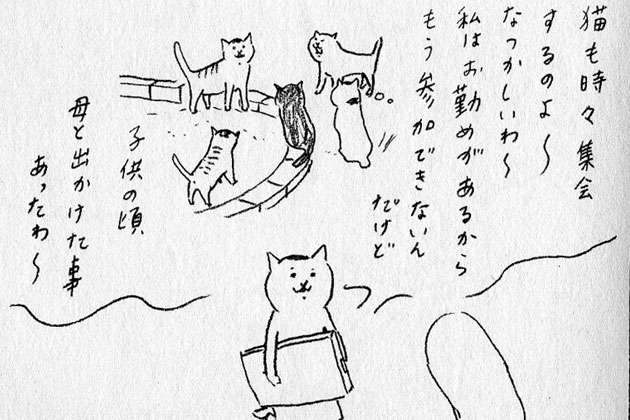 猫も時々集会
するのよ〜
なつかしいわ〜
私はお勤めがあるから
もう参加できないん
だけど
子供の頃
母と出かけた事
あったわ〜